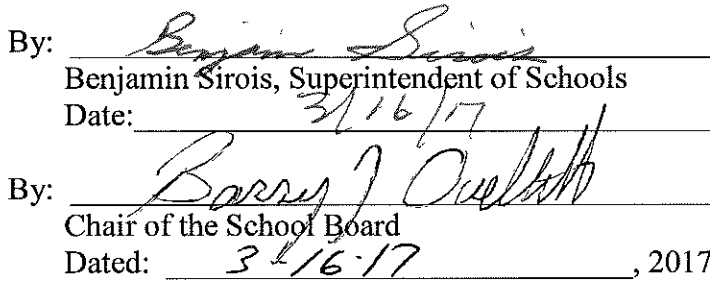 By: Benjamin Sirois
Benjamin Sirois, Superintendent of Schools
Date: 3/16/17
By: Barry J Ouellette
Chair of the School Board
Dated: 3-16-17, 2017